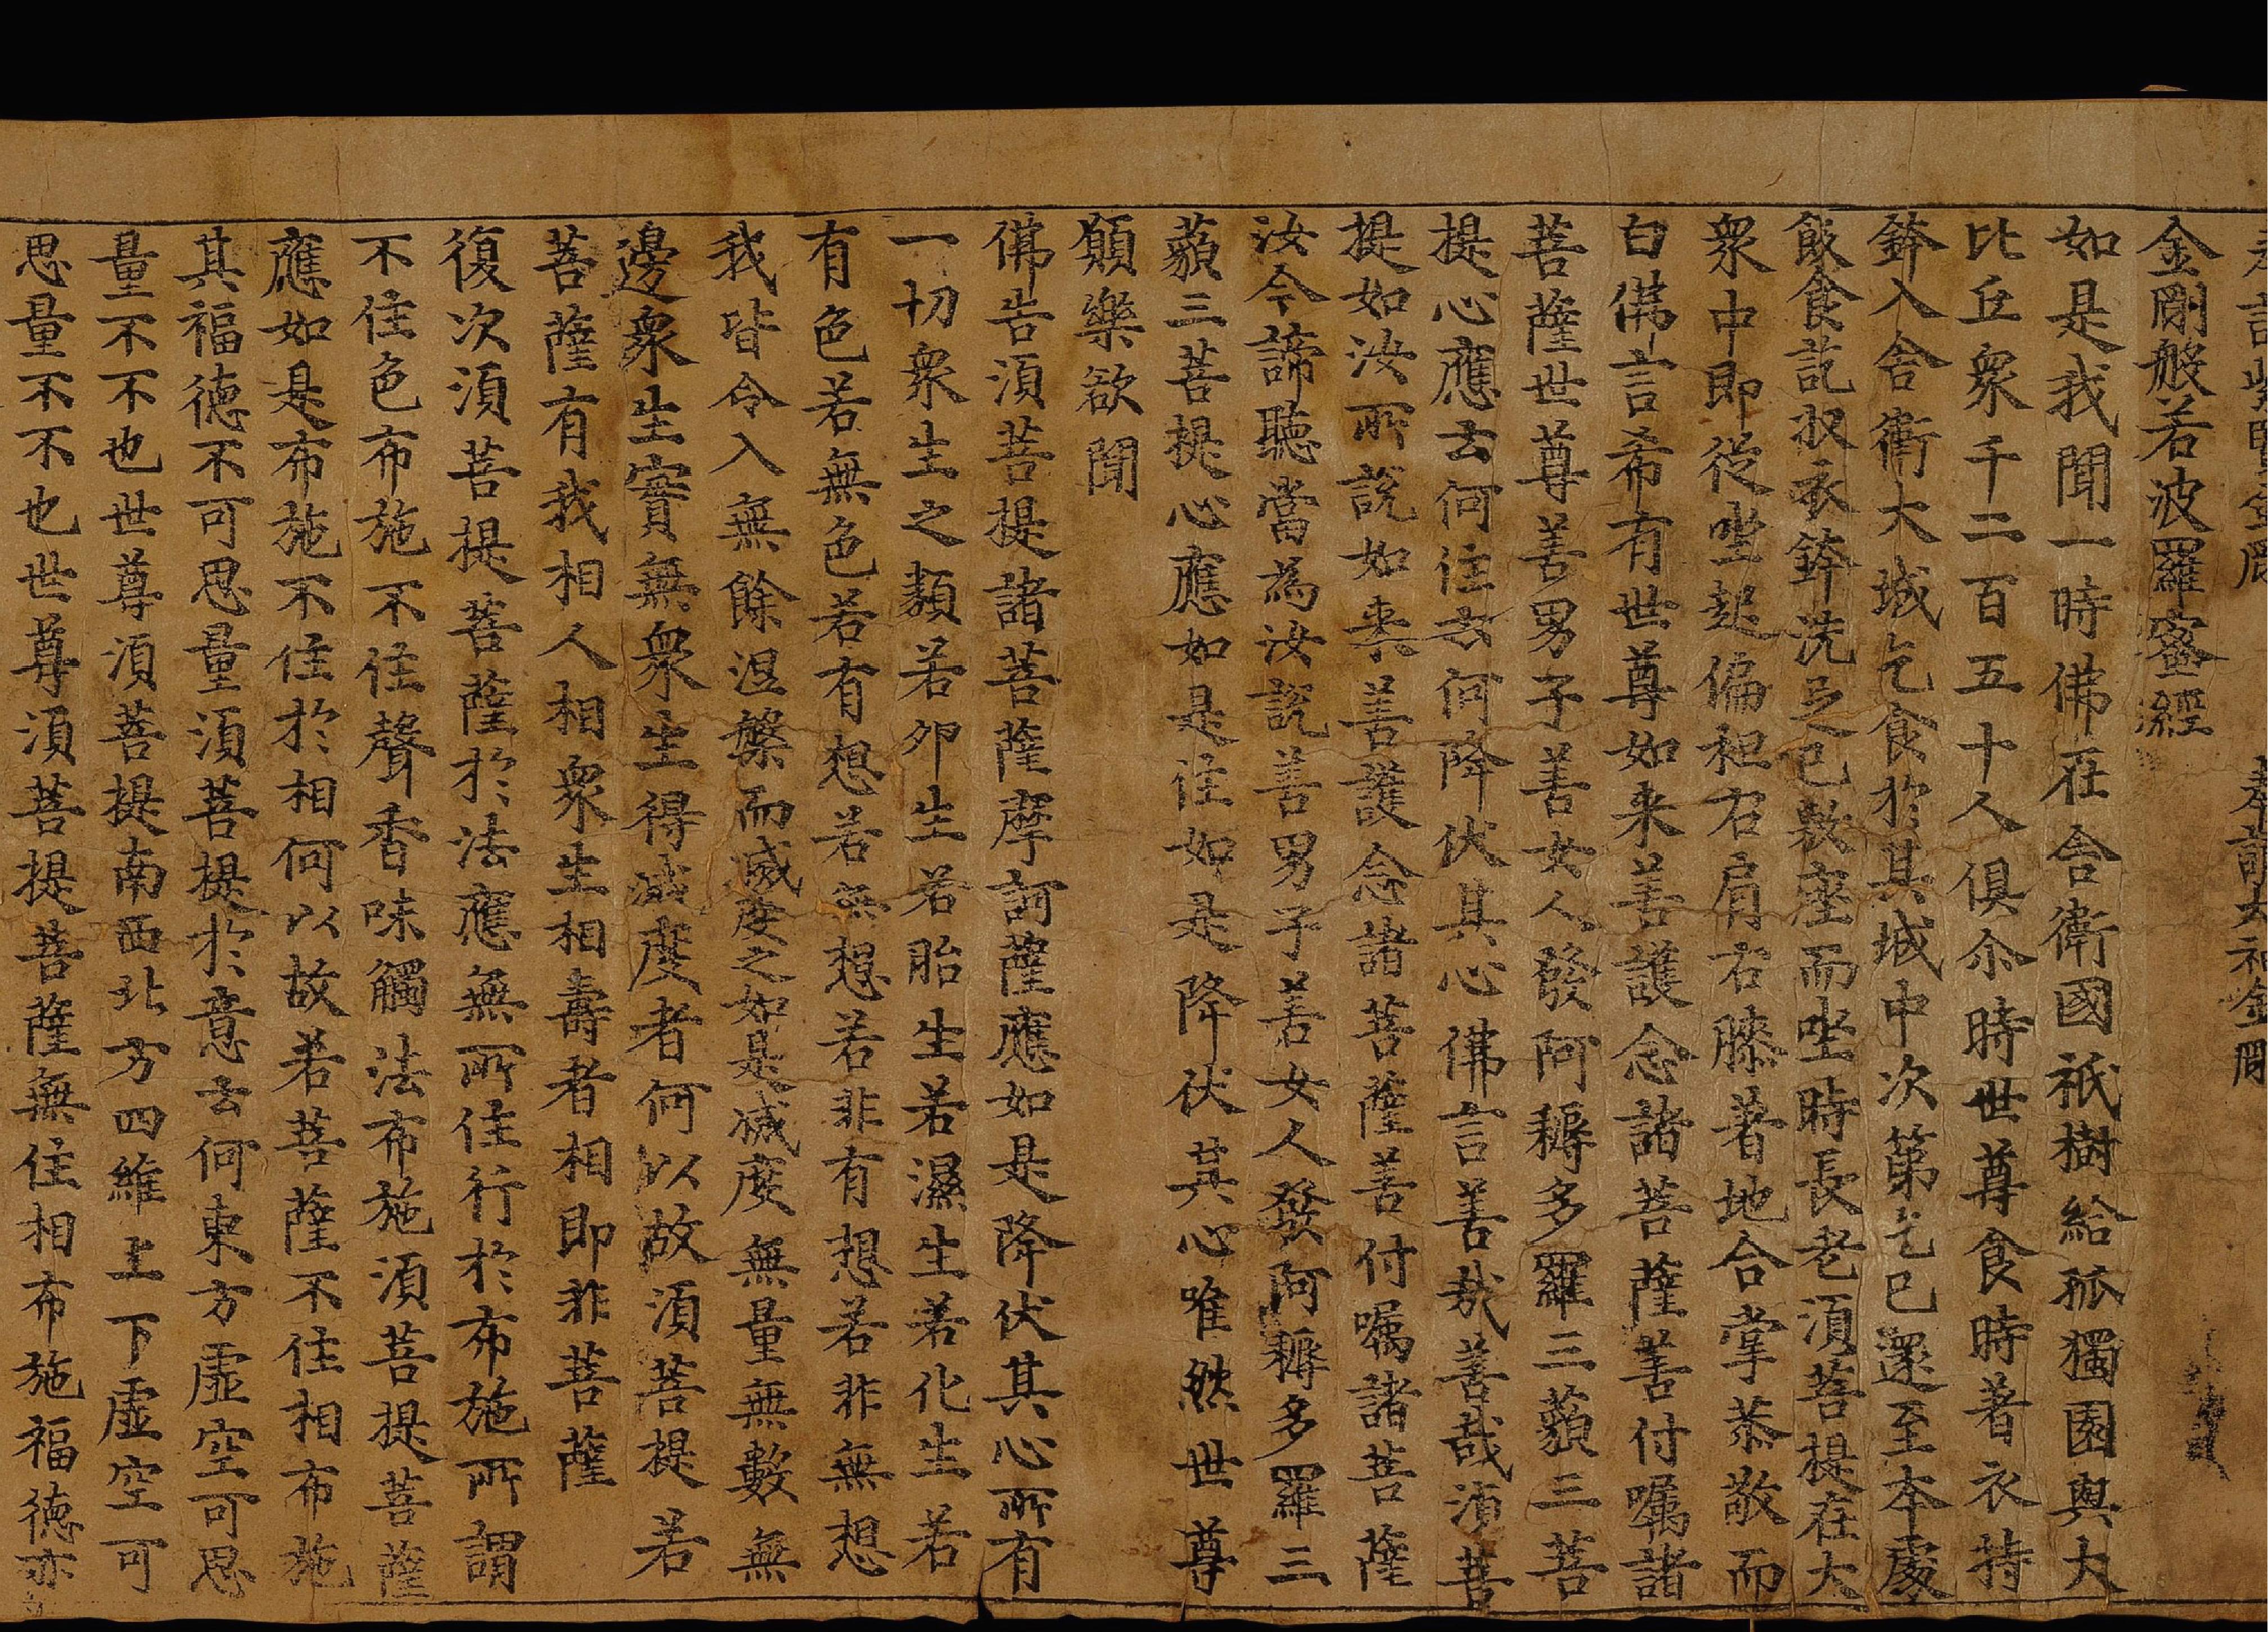 奉請紫賢金剛 奉請大神金剛
金剛般若波羅蜜經
如是我聞一時佛在舍衛國祇樹給孤獨園與大
比丘衆千二百五十人俱尒時世尊食時著衣持
鉢入舍衛大城乞食於其城中次第乞已還至本處
飯食訖収衣鉢洗足已敷座而坐時長老須菩提在大
衆中即從坐起偏袒右肩右膝著地合掌恭敬而
白佛言希有世尊如来善護念諸菩薩善付囑諸
菩薩世尊善男子善女人發阿耨多羅三藐三菩
提心應云何住云何降伏其心佛言善哉善哉須菩
提如汝所說如来善護念諸菩薩善付囑諸菩薩
汝今諦聽當為汝說善男子善女人發阿耨多羅三
藐三菩提心應如是住如是降伏其心唯然世尊
願樂欲聞
佛告須菩提諸菩薩摩訶薩應如是降伏其心所有
一切衆生之類若卵生若胎生若濕生若化生若
有色若無色若有想若無想若非有想若非無想
我皆令入無餘涅槃而滅度之如是滅度無量無數無
邊衆生實無衆生得滅度者何以故須菩提若
菩薩有我相人相衆生相壽者相即非菩薩
復次須菩提菩薩於法應無所住行於布施所謂
不住色布施不住聲香味觸法布施須菩提菩薩
應如是布施不住於相何以故若菩薩不住相布施
其福德不可思量須菩提於意云何東方虛空可思
量不不也世尊須菩提南西北方四維上下虛空可
思量不不也世尊須菩提菩薩無住相布施福德亦